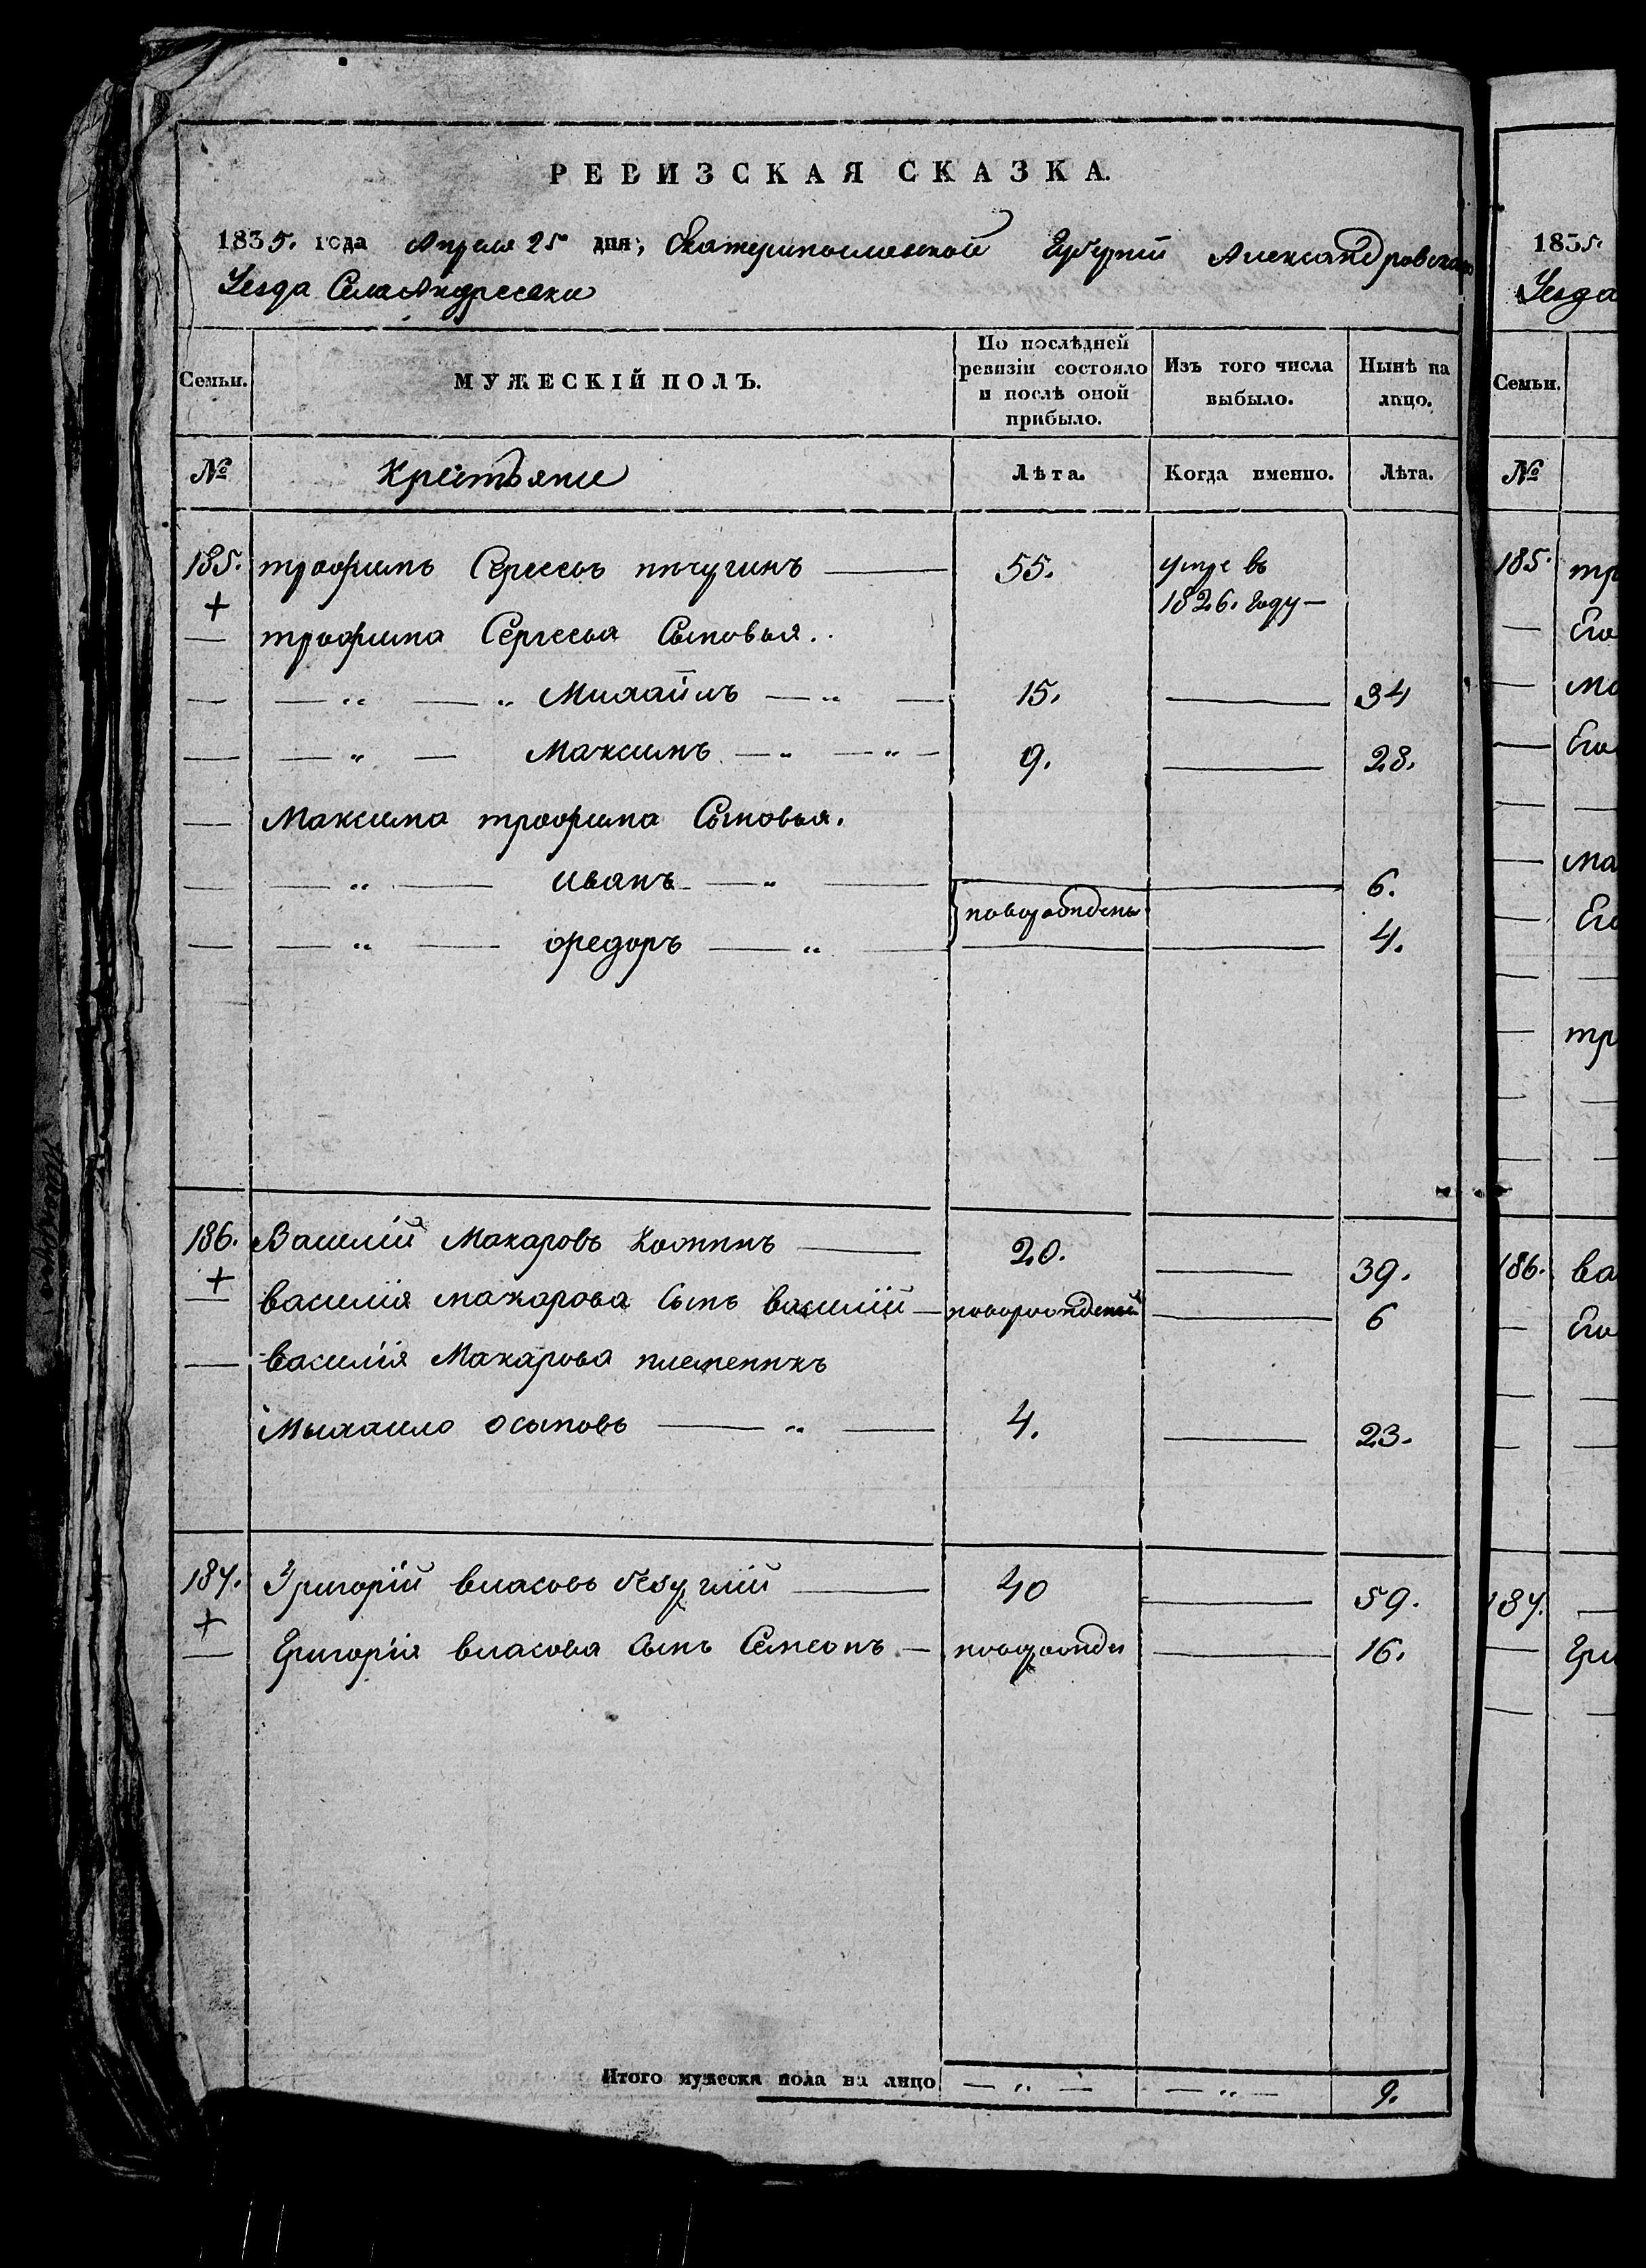 РЕВИЗСКАЯ СКАЗКА.
1835. года Апреля 25 дня, Екатеринославской Губерніи Александровскаго
Уезда Села Андреевки
Семьи.
МУЖЕСКІЙ ПОЛЪ.
По послѣдней ревизіи состояло и послѣ оной прибыло.
Изъ того числа выбыло.
Нынѣ на лицо.
№ Крестьяне Лѣта. Когда именно. Лѣта.
185. трофимъ Сергеевъ пичугинъ — 55. умре въ
+ 1826. году —
— трофима Сергеева Сыновья..
— — „ — „ Михайлъ — „ — 15. — 34
— — „ — Максимъ — „ — „ — 9. — 28.
— Максима трофима Сыновья.
— — „ — иванъ — „ — — 6.
новорожденъ
— — „ — федоръ — „ — — 4.
186. Василій Макаровъ — 20. — 39.
+
— василія макарова Сынъ василій — новорожденъ — 6
— василія Макарова племеникъ
Михаило Осиповъ — „ — 4. — 23.
187. Григорій власовъ безуглій — 40 — 59.
+
— Григорія власова Сынъ Семеонъ — новорожде — 16.
Итого мужеска пола на лицо — „ — — „ — 9.
1835.
Уезда
Семьи.
№
185. тр
— Его
— ма
— Его
— —
— ма
— Его
— —
— тр
— —
— —
186. ва
— Его
— —
— —
187. —
— Гри
— —